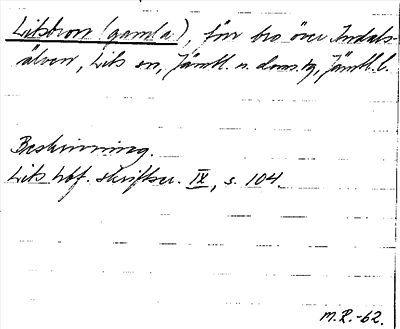 Litsbron (gamla), förr bro över Indals-
älven, Lits sn, Jämtl. n. doms.g, Jämtl. l.
Beskrivning.
Lits hbf. skriftser. IX, s. 104.
M.R.-62.